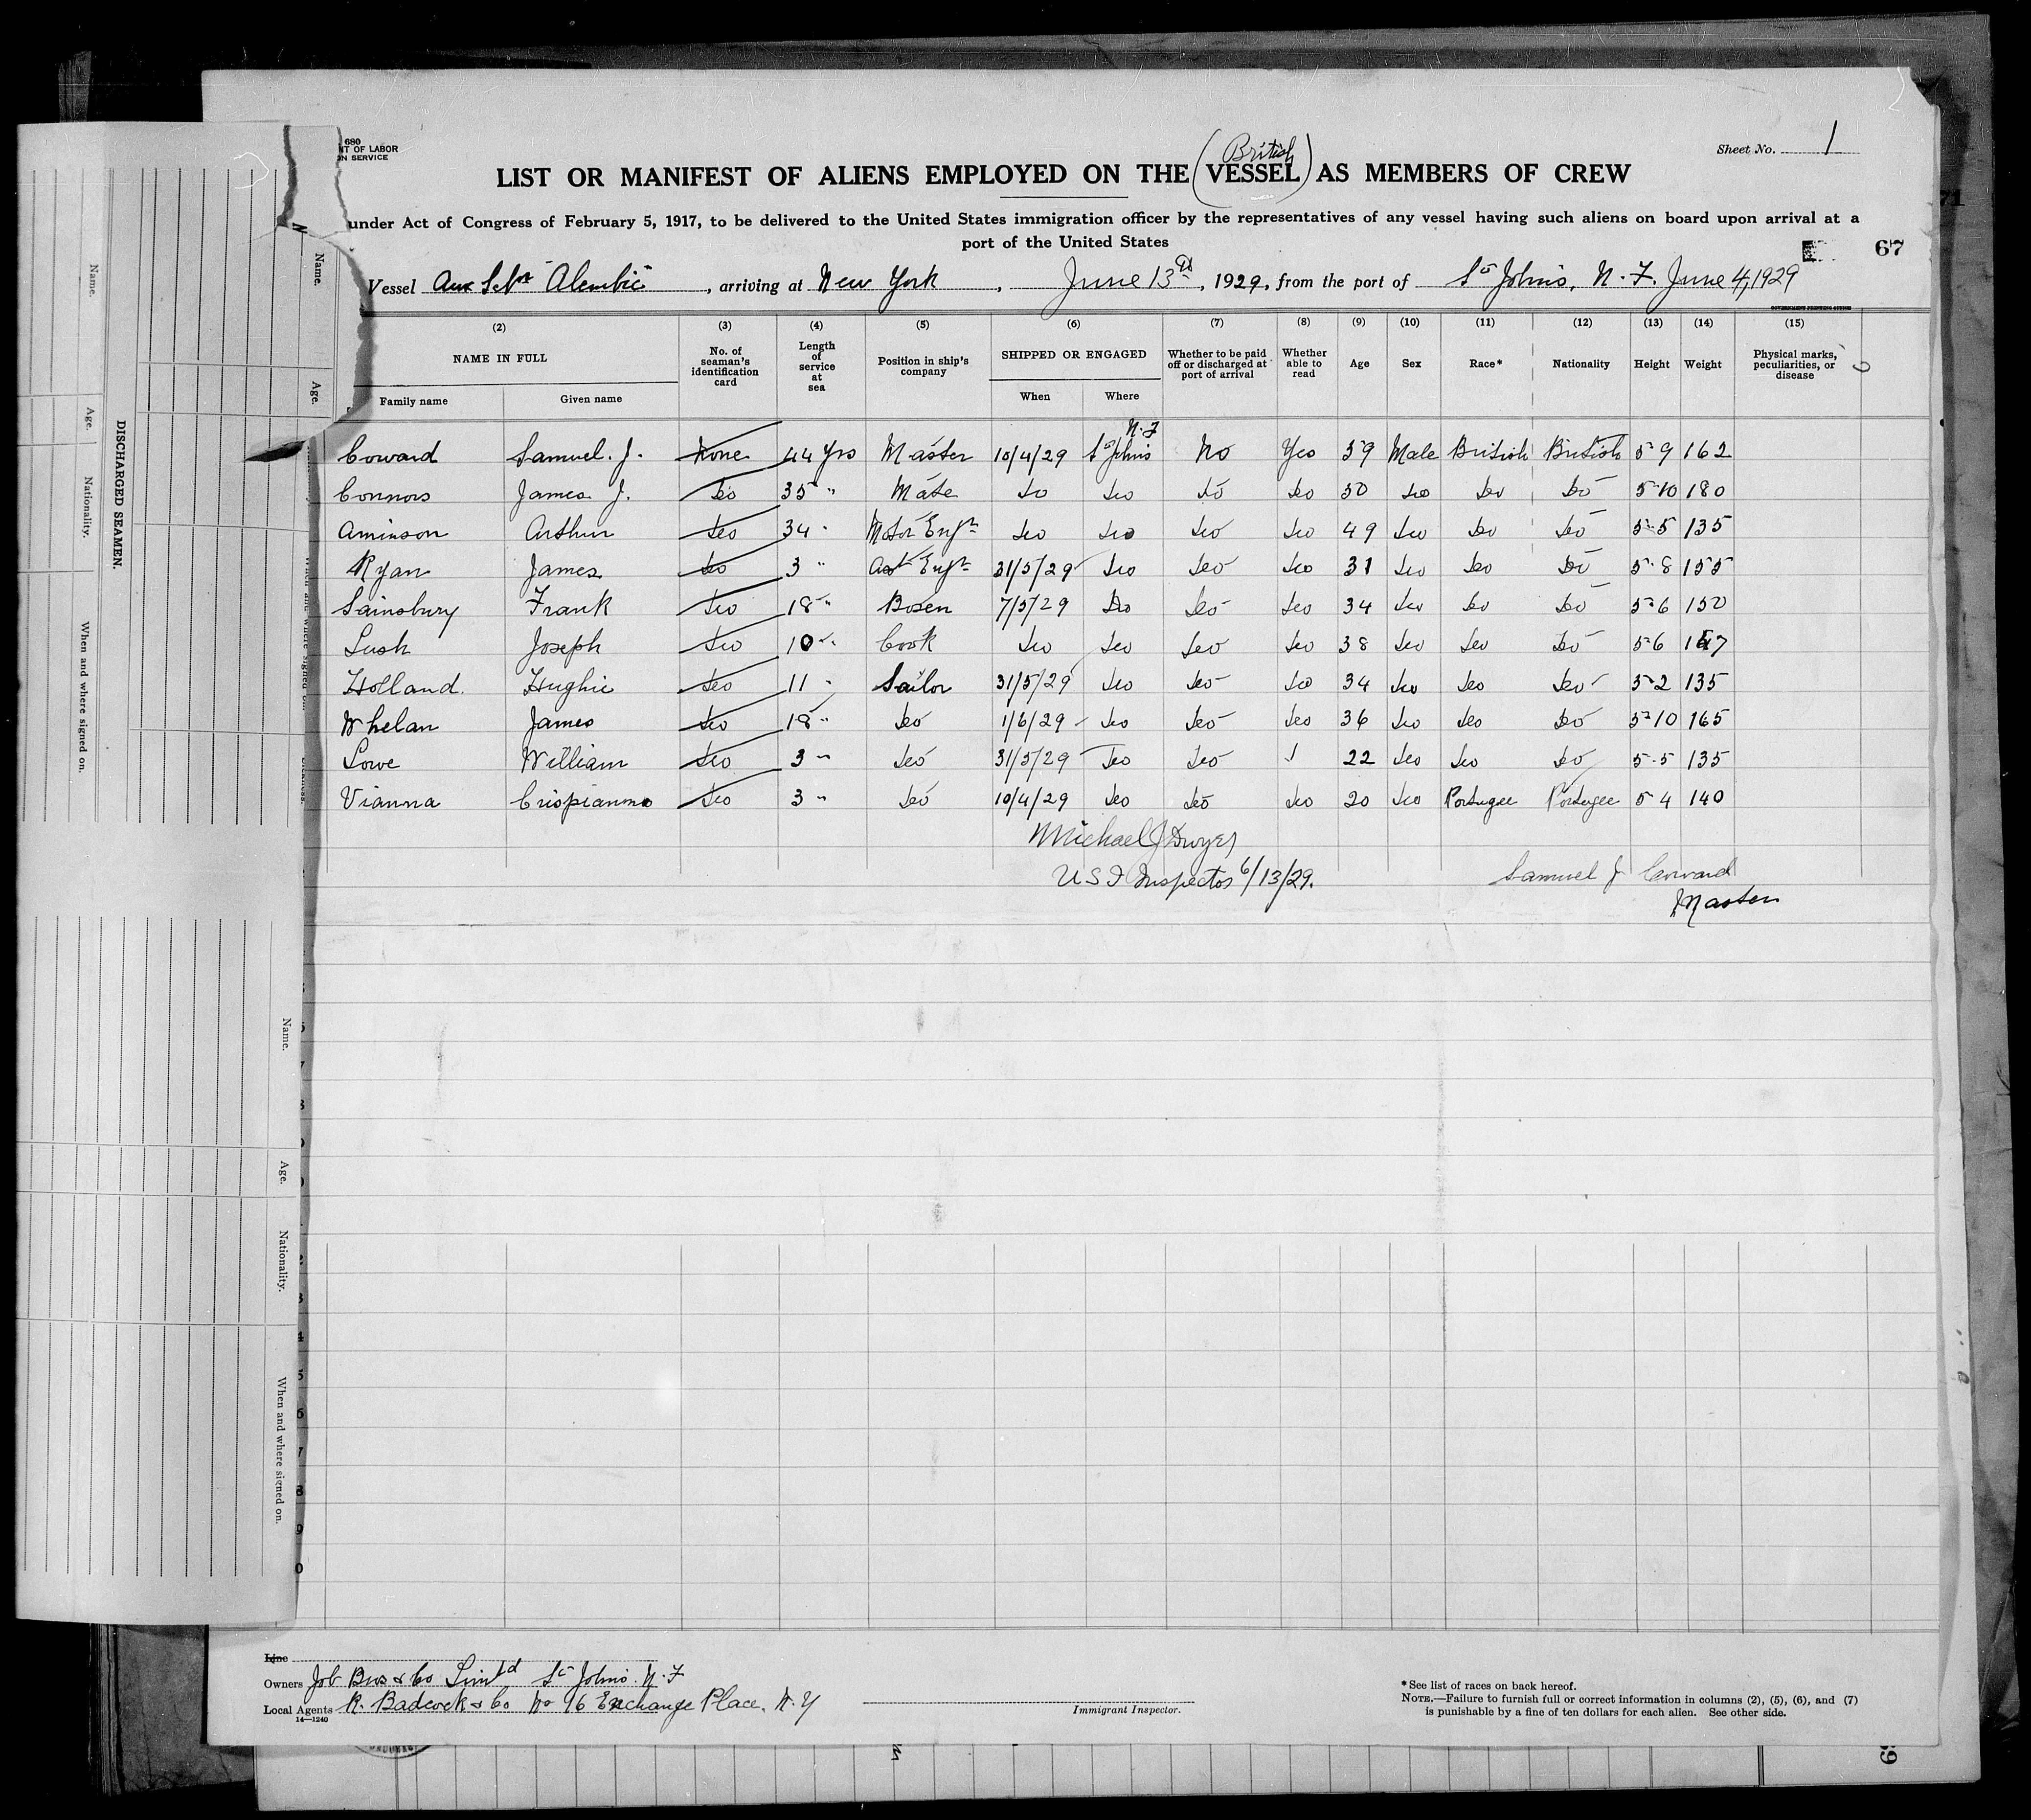 680
NT OF LABOR
ON SERVICE
Sheet No. 1
British
LIST OR MANIFEST OF ALIENS EMPLOYED ON THE (VESSEL) AS MEMBERS OF CREW
under Act of Congress of February 5, 1917, to be delivered to the United States immigration officer by the representatives of any vessel having such aliens on board upon arrival at a
port of the United States
67
Vessel Aux Schr "Alembic", arriving at New York, June 13th, 1929, from the port of St Johns, N.F. June 4, 1929
GOVERNMENT PRINTING OFFICE
(2) (3) (4) (5) (6) (7) (8) (9) (10) (11) (12) (13) (14) (15)
NAME IN FULL
Family name Given name
No. of seaman's identification card
Length of service at sea
Position in ship's company
SHIPPED OR ENGAGED
When Where
Whether to be paid off or discharged at port of arrival
Whether able to read
Age
Sex
Race*
Nationality
Height
Weight
Physical marks, peculiarities, or disease
N.F
Coward Samuel. J. None 44 yrs Master 10/4/29 St Johns No Yes 59 Male British British 5-9 162
Connors James J. do 35 " Mate do do do do 50 do do do 5-10 180
Aminson Arthur do 34 " Motor Engr do do do do 49 do do do 5-5 135
Ryan James do 3 " Asst Engr 31/5/29 do do do 31 do do do 5-8 155
Sainsbury Frank do 18 " Bosen 7/5/29 do do do 34 do do do 5-6 150
Lush Joseph do 10 " Cook do do do do 38 do do do 5-6
Holland. Hughie do 11 " Sailor 31/5/29 do do do 34 do do do 5-2 135
Whelan James do 18 " do 1/6/29 do do do 36 do do do 5-10 165
Lowe William do 3 " do 31/5/29 do do 22 do do do 5-5 135
Vianna Crispianmo do 3 " do 10/4/29 do do do 20 do Portugee Portugee 5-4 140
Michael J Dwyer
U S I Inspector 6/13/29.
Samuel J Coward
Master
DISCHARGED SEAMEN.
Name.
Age.
Nationality.
When and where signed on.
Name.
Age.
Name.
Age.
Nationality.
When and where signed on.
Line
Owners Job Bros & Co Limtd St Johns N.F
Local Agents R. Badcock & Co No 16 Exchange Place, N.Y
14—1240
Immigrant Inspector.
*See list of races on back hereof.
NOTE.—Failure to furnish full or correct information in columns (2), (5), (6), and (7)
is punishable by a fine of ten dollars for each alien. See other side.